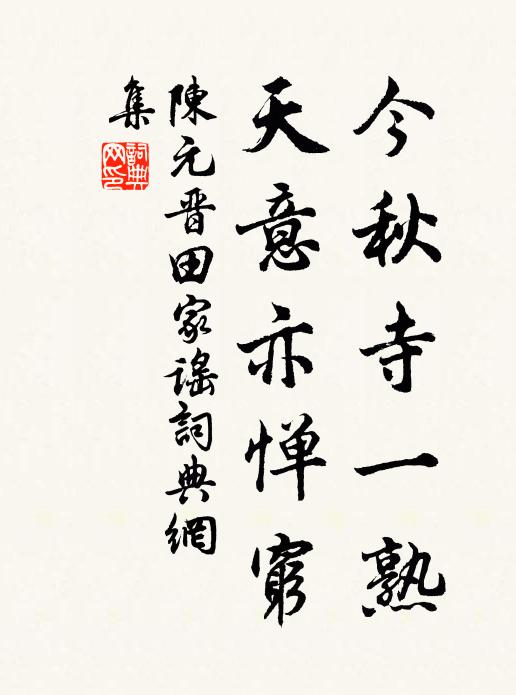 今秋寺一熟
天意亦惮窮
陳元晋田家謡詞典網
集
詞典
网印